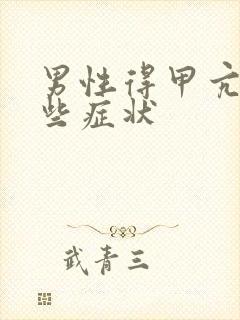 男性得甲亢
些症状
武青三